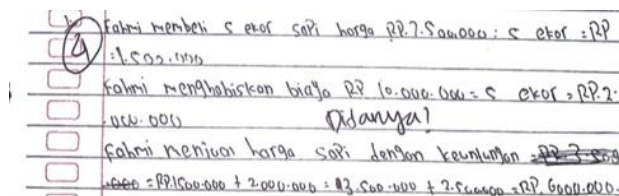 4
Fahmi membeli 5 ekor sapi harga RP.7.500.000 : 5 ekor = RP
: 1.500.000
Fahmi menghabiskan biaya RP 10.000.000 = 5 ekor = RP.2.
000.000 Ditanya?
Fahmi menjual harga sapi dengan keuntungan
= RP.1500.000 + 2.000.000 = 3.500.000 + 2.500000 = RP. 6000.000.